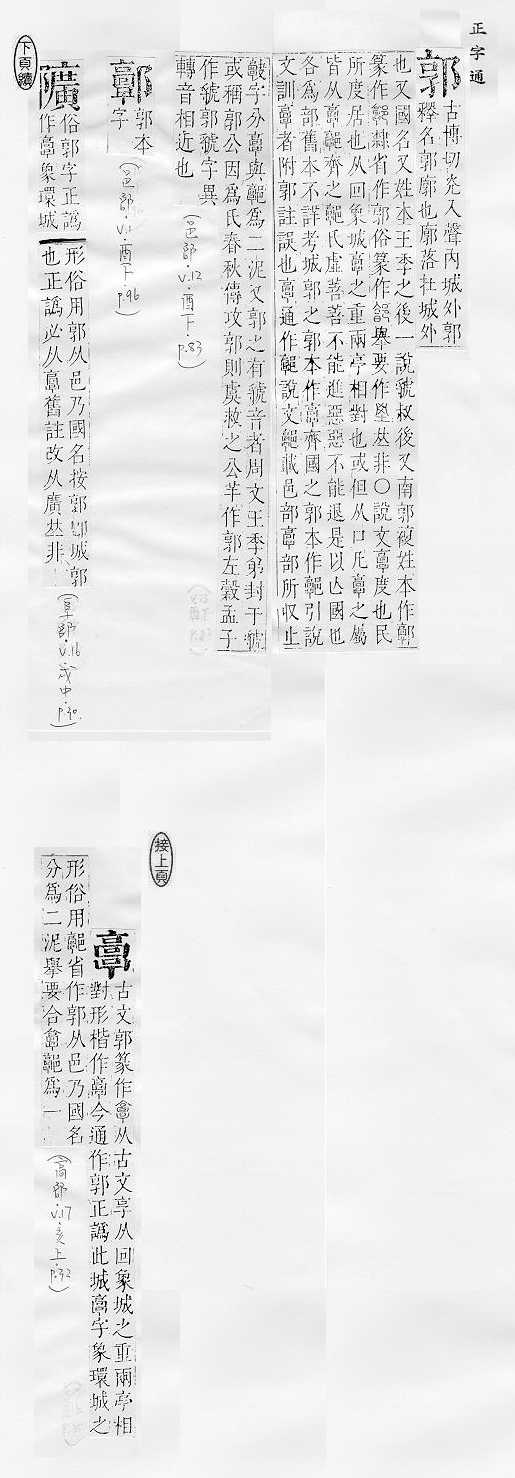 正字通
郭
古博切光入聲内城外郭
釋名郭廓也廓落在城外
也又國名又姓本王季之後一說虢叔後又南郭複姓本作𨛬
篆作𨞨隷省作郭俗篆作舉要作𡋣𠀤非〇說文𩫏度也民
所度居也从回象城𩫏之重兩亭相對也或但从口凡𩫏之屬
皆从𩫏𨞨齊之𨞨氏虛善善不能進惡惡不能退是以亾國也
各爲部舊本不詳考城郭之郭本作𩫏齊國之郭本作𨞨引說
文訓𩫏者附郭註誤也𩫏通作𨞨說文𨞨載邑部𩫏部所収止
㪣字分𩫏與𨞨爲二泥又郭之有虢音者周文王季弟封于虢
或稱郭公因爲氏春秋傳攻郭則虞救之公羊作郭左穀孟子
作虢郭虢字異
轉音相近也
(邑部·V.12·酉下·P.83)
𨞨
郭本
字
(邑部·V.1·酉下·P.96)
隵
俗郭字正譌
作𩫏象環城
形俗用郭从邑乃國名按郭卽城郭
也正譌必从𩫏舊註改从廣𠀤非
(阜部·V.16·戌中·P.40)
下頁續
接上頁
𩫏
古文郭篆作𩫖从古文享从回象城之重兩亭相
對形楷作𩫏今通作郭正譌此城𩫏字象環城之
形俗用𨞨省作郭从邑乃國名
分爲二泥舉要合𩫏𨞨爲一
(高部·V.17·亥上·P.32)